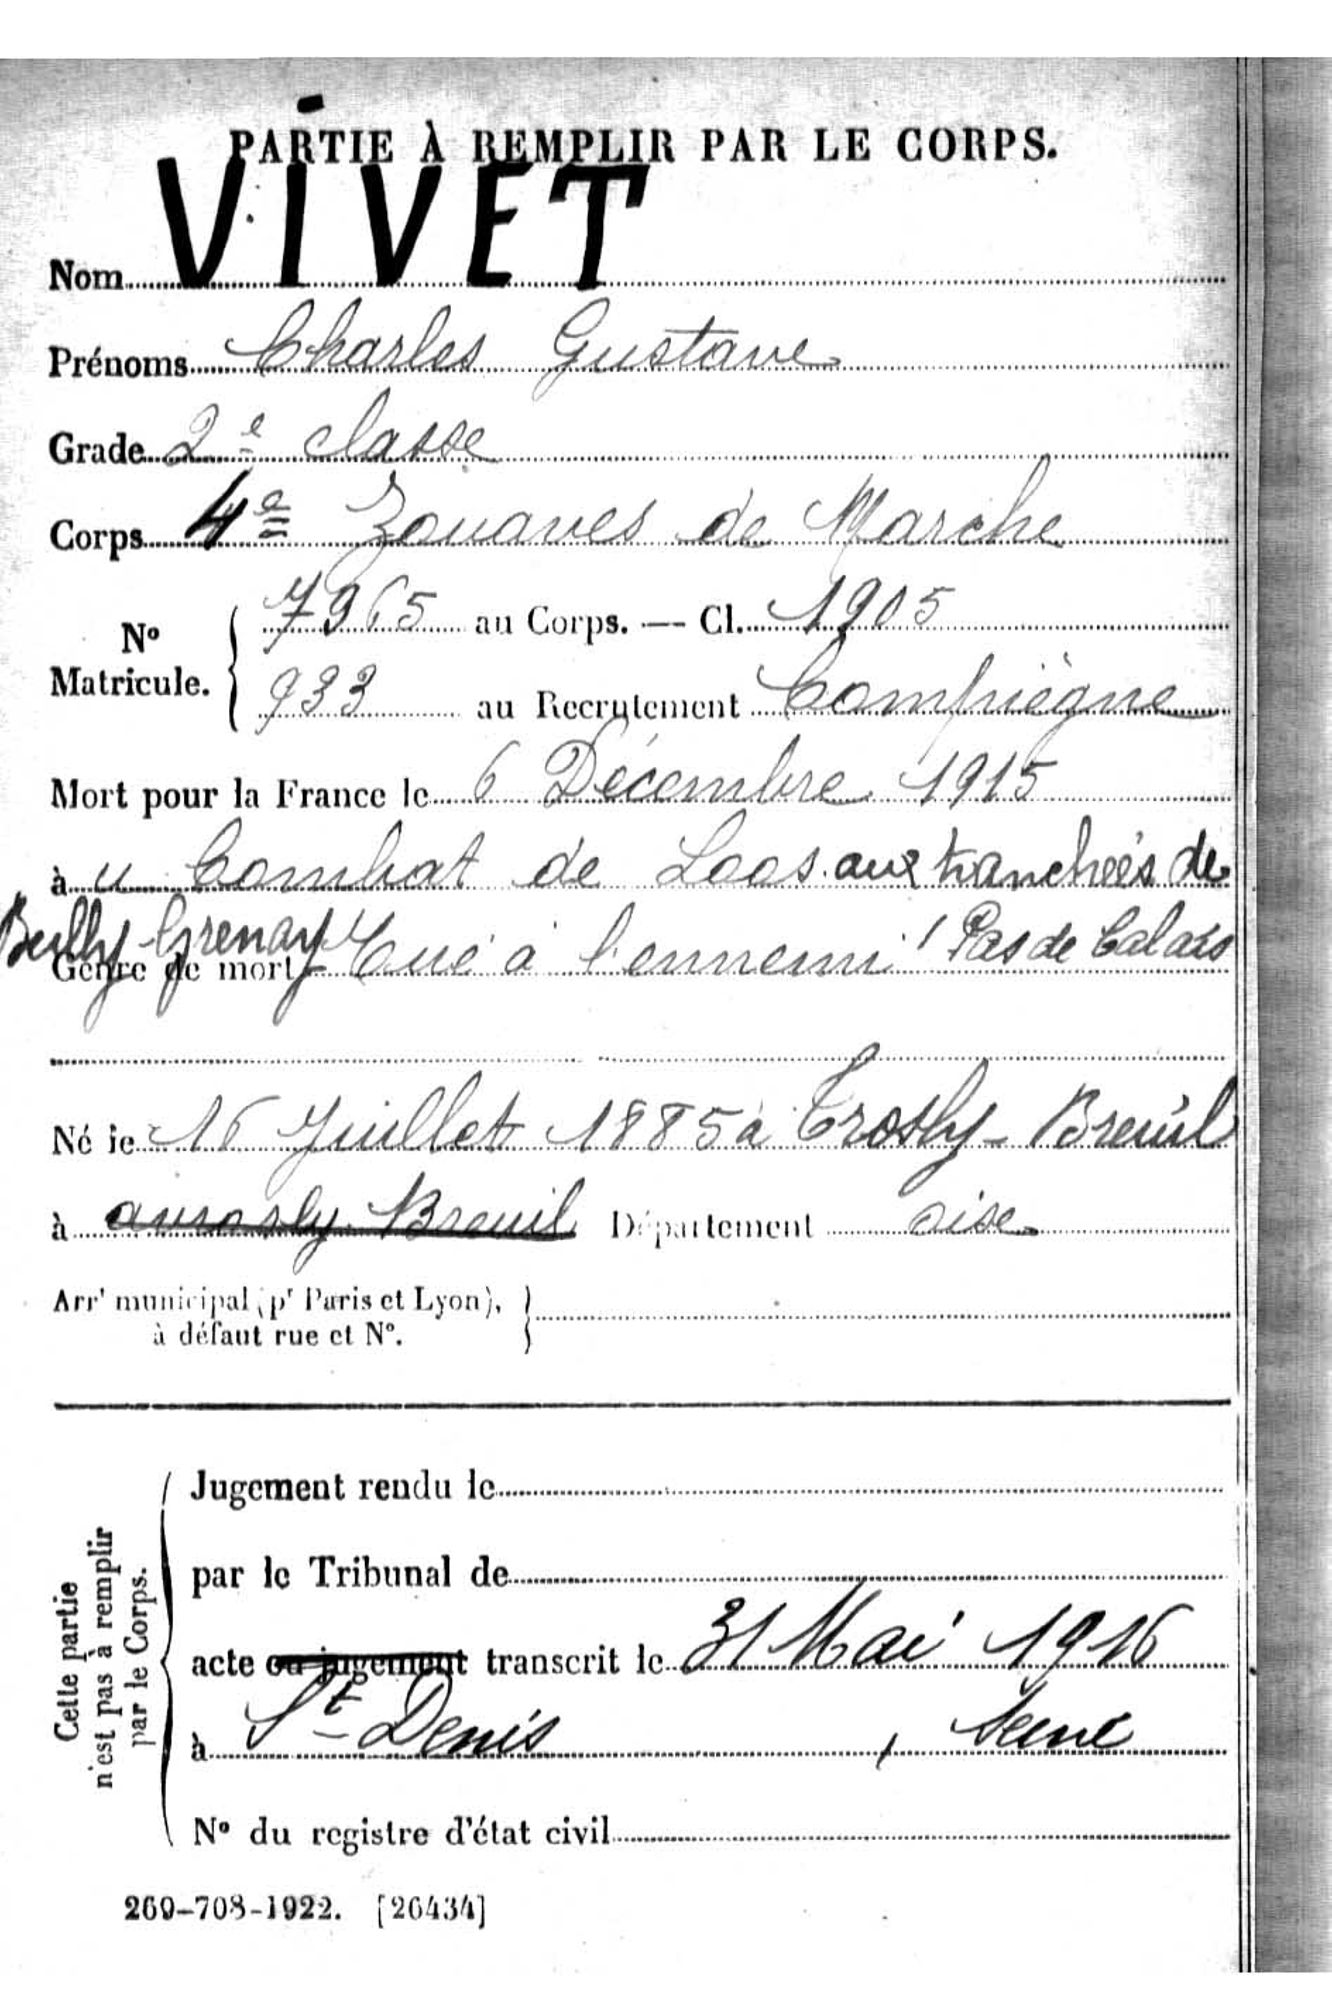 PARTIE À REMPLIR PAR LE CORPS.
Nom VIVET
Prénoms Charles Gustave
Grade 2e classe
Corps 4e Zouaves de Marche
No Matricule. 7965 au Corps. — Cl. 1905
933 au Recrutement Compiègne
Mort pour la France le 6 Décembre 1915
à u Combat de Loos aux tranchées de
Bully-Grenay Pas de Calais
Genre de mort Tué à l'ennemi
Né le 16 Juillet 1885 à Trosly-Breuil
à Breuil Département oise
Arrt municipal (pr Paris et Lyon),
à défaut rue et No.
Cette partie
n'est pas à remplir
par le Corps.
Jugement rendu le
par le Tribunal de
acte ou jugement transcrit le 31 Mai 1916
à St-Denis, Seine
No du registre d'état civil
269-708-1922. [26434]